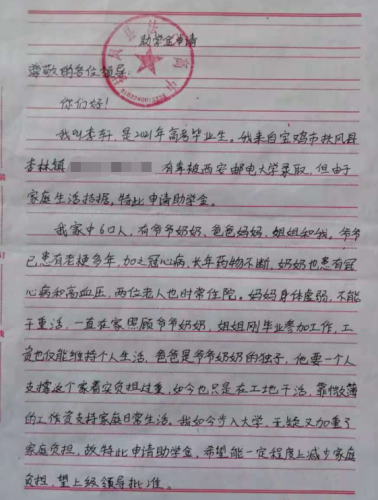 助学金申请
尊敬的各位领导:
你们好!
我叫李轩,是2021年高考毕业生。我来自宝鸡市扶风县
杏林镇 有幸被西安邮电大学录取,但由于
家庭生活拮据,特此申请助学金。
我家中6口人,有爷爷奶奶,爸爸妈妈,姐姐和我。爷爷
已患有老梗多年,加之冠心病,长年药物不断,奶奶也患有冠
心病和高血压,两位老人也时常住院。妈妈身体虚弱,不能
干重活,一直在家照顾爷爷奶奶,姐姐刚毕业参加工作,工
资也仅能维持个人生活,爸爸是爷爷奶奶的独子,他要一个人
支撑这个家着实负担过重,如今也只是在工地干活,靠微薄
的工作资支持家庭日常生活。我如今步入大学,无疑又加重了
家庭负担,故特此申请助学金,希望能一定程度上减少家庭
负担,望上级领导批准。